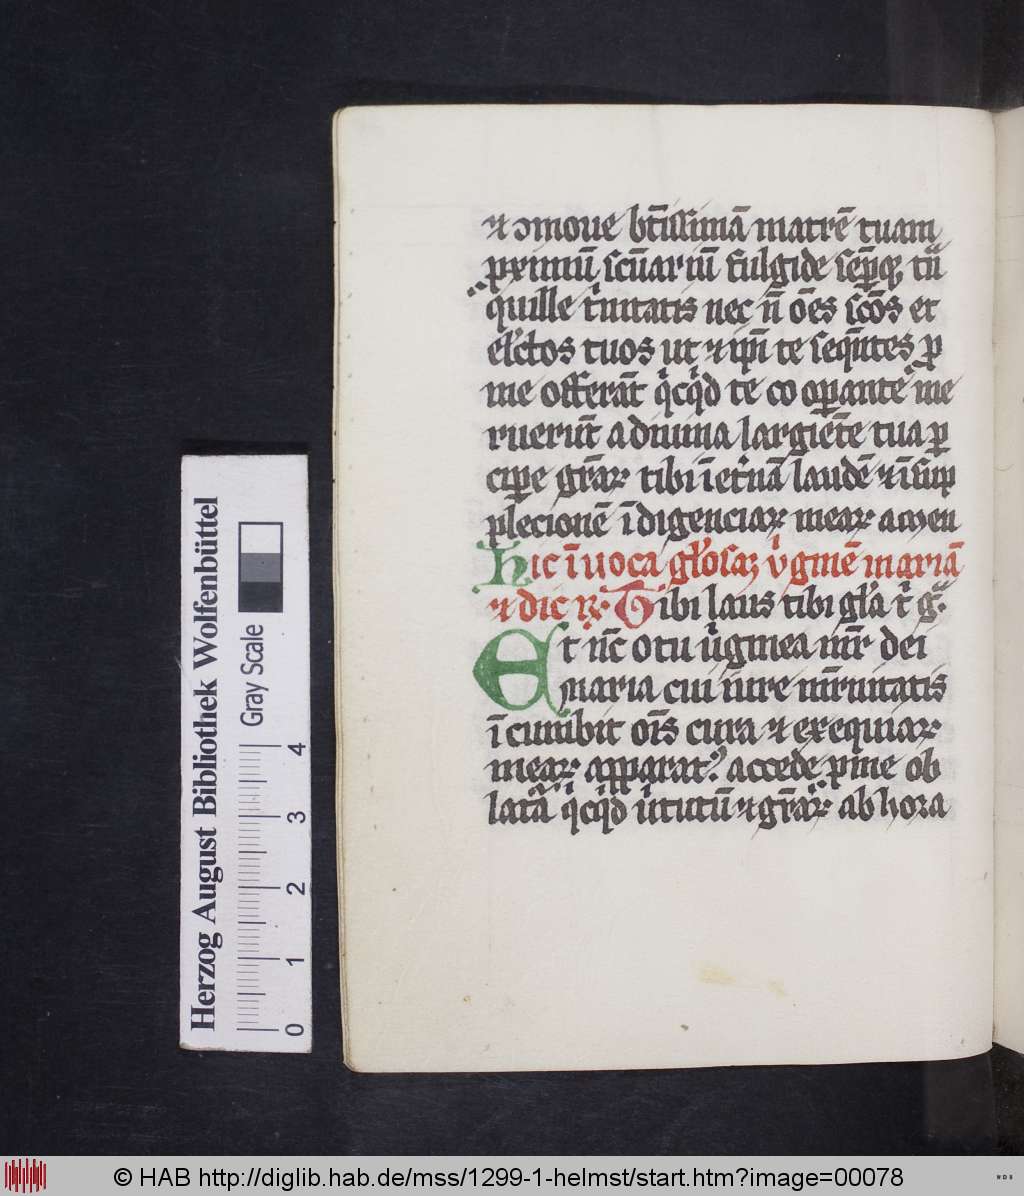 ⁊ ɔmoue bt̄issimā matrē tuam
ꝓximū scūariū fulgide sēꝑqꝫ tͣn
quille tͥnitatis nec n̄ oēs scōs et
elc̄tos tuos ut ⁊ ip̄i te seqn̄tes ꝓ
me offerāt qͥcqͥd te co oꝑante me
ruerūt a diuina largiēte tua ꝑ
cipe grāꝝ tibi ī et̓nā laudē ⁊ ī sup
plecionē īdigenciaꝝ meaꝝ amen
Hic īuoca gl̓osaꝫ v̓ginē mariā
⁊ dic ꝶ· Tibi laus tibi gl̓a tͥ g̓ꝝ
Et nc̄ o tu v̓ginea mr̄ dei
maria cui iure mr̄nitatis
īcumbit oīs cura ⁊ exequiaꝝ
meaꝝ apparatꝰ accede ꝓ me ob
latā qͥcqͥd v̓tutū ⁊ grāꝝ ab hora
Herzog August Bibliothek Wolfenbüttel
Gray Scale
0 1 2 3 4
© HAB http://diglib.hab.de/mss/1299-1-helmst/start.htm?image=00078